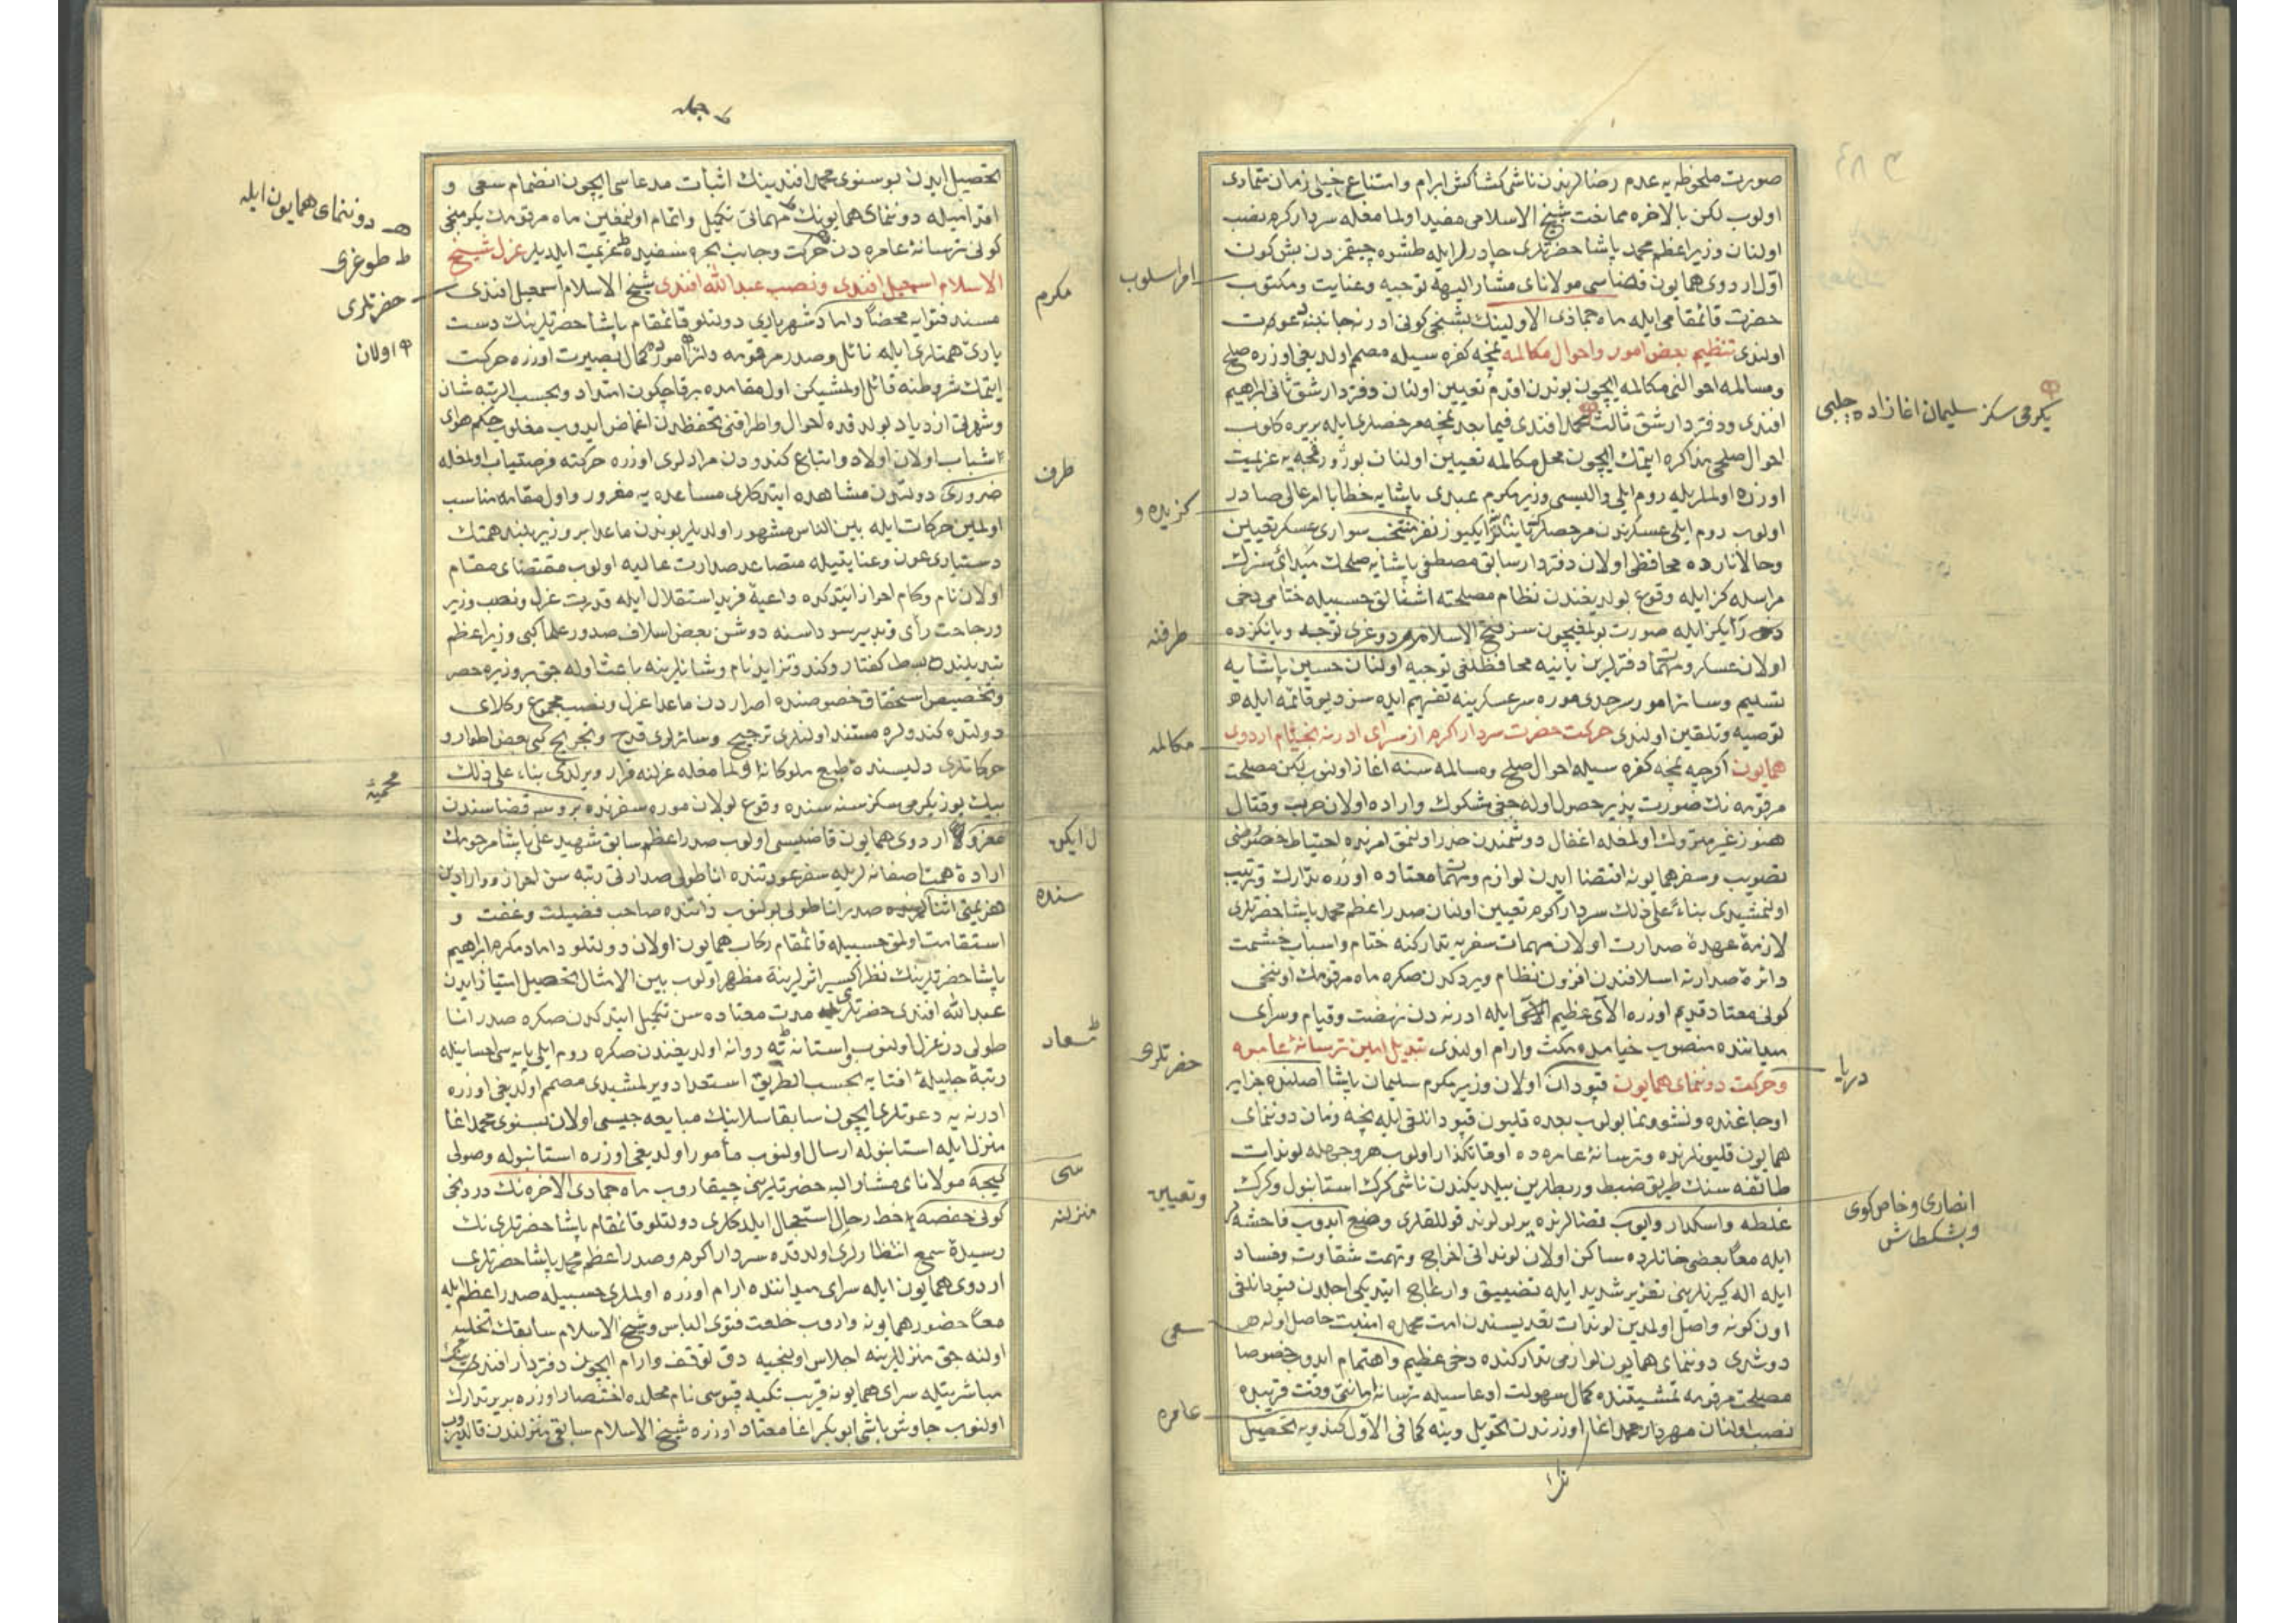 صورت ملحوظه یه عدم رضالرندن ناشی کشاکش ابرام و امتناع خیلی زمان متمادی
اولوب لکن بالاخره ممانعت شیخ الاسلامی مفید اولمامغله سردار اکرم نصب
اولنان وزیر اعظم محمد پاشا حضرتلری چادرلر ایله طشره چیقمزدن بش کون
اول اردوی همایون قضاسی مولانای مشار الیهه توجیه و عنایت و مکتوب
امر اسلوب
حضرت قائمقامی ایله ماه جماذی الاولینك بشنجی کونی ادرنه جانبنه دعوت
اولندی تنظیم بعض امور و احوال مکالمه نمچه کفره سیله مصمم اولدیغی اوزره صلح
و مسالمه احوالنی مکالمه ایچون بوندن اقدم تعیین اولنان دفتردار شق ثانی ابراهیم
یکرمی سکز سلیمان اغازاده چلبی
افندی و دفتردار شق ثالث محمد افندی فیما بعد نمچه مرخصلری ایله بریره کلوب
احوال صلحی مذاکره ایتمك ایچون محل مکالمه تعیین اولنان پوژورفچه یه عزیمت
اوزره اولملریله روم ایلی والیسی وزیر مکرم عبدی پاشایه خطابا امر عالی صادر
کزیده و
اولوب روم ایلی عسکرندن مرخصلرك یانلرینه ایکیوز نفر منتخب سواری عسکر تعیین
و حالا نارده محافظی اولان دفتردار سابق مصطفی پاشایه صلحك مبدائی سزك
مراسله کز ایله وقوع بولدیغندن نظام مصلحته اشفالق حسبیله ختامی دخی
رأیکز ایله صورت بولمغیچون سز فتح الاسلامه دوغری توجه و یانکزده
طرفنه
اولان عسکر و مهماد دفترلرین یانیه محافظلغی توجیه اولنان حسین پاشایه
تسلیم و سائر امور سرحدی موره سرعسکرینه تفهیم ایده سز دیو قائمه ایله
توصیه و تلقین اولندی حرکت حضرت سردار اکرم از سرای ادرنه بخیام اردوی
مکالمه
همایون اکرچه نمچه کفره سیله احوال صلح و مسالمه سنه اغاز اولنوب لکن مصلحت
مرقومه نك صورت پذیر حصول اوله جغی مشکوك و اراده اولان حرب و قتال
هنوز غیر متروك اولمغله اغفال دوشمندن حذر اولنمق امرنده احتیاط خصوصی
تصویب و سفر همایونه اقتضا ایدن لوازم و مهمات معتاده اوزره تدارك و ترتیب
اولنمشیدی بناء علی ذلك سردار اکرم تعیین اولنان صدر اعظم محمد پاشا حضرتلری
لازمهٔ عهدهٔ صدارت اولان مهمات سفریه تدارکنه ختام و اسباب حشمت
دائرهٔ صدارته اسلافندن افزون نظام ویردکدن صکره ماه مرقومك اوننجی
کونی معتاد قدیم اوزره الآی عظیم ایله ادرنه دن نهضت و قیام و سرای
میداننده منصوب خیامده مکث و ارام اولندی تبدیل امین ترسانهٔ عامره
حضرتلری
و حرکت دوننمای همایون قپودان اولان وزیر مکرم سلیمان پاشا اصلنده جزایر
دریا
اوجاغنده و نشو و نما بولوب بعده قلیون قپودانلغی ایله نیچه زمان دوننمای
همایون قلیونلرنده و ترسانهٔ عامره ده اوقاتکذار اولوب هر وجهله لوندات
طائفه سنك طریق ضبط و ربطلرین بیلدیکندن ناشی کرك استانبول و کرك
و تعیین
غلطه و اسکدار و ایوب قضالرنده یر لوند قوللقلری وضع ایدوب فاحشه
انصاری و خاص کوی
و بشکطاش
ایله معا بعضی خانلرده ساکن اولان لونداتی اخراج و تهمت شقاوت و فساد
ایله اله کیرنلرینی تعزیر شدید ایله تضییق و ازعاج ایتدیکی اجلدن قپودانلغی
اون کونه واصل اولمدین لوندات تعدیسندن امت محمده امنیت حاصل اوله
سعی
دوشدی دوننمای همایون لوازمی تدارکنده دخی عظیم و اهتمام ایدوب خصوصا
مصلحت مرقومه تمشیتنده کمال سهولت ادعاسیله ترسانه امانتی وقت قریبده
عامره
نصب اولنان مهردار محمد اغا اوزرندن تحویل و ینه کما فی الاول کندویه تحصیل
تحصیل ایدن بوسنوی محمد افندینك اثبات مدعاسی ایچون انضمام سعی و
دوننمای همایون ایله
اقدامیله دوننمای همایونك مهماتی تکمیل و اتمام اولنمغلین ماه مرقومك یکرمنجی
کونی ترسانهٔ عامره دن حرکت و جانب بحره سفیده عزیمت ایلدیلر عزل شیخ
طوغری
الاسلام اسمعیل افندی و نصب عبد الله افندی شیخ الاسلام اسمعیل افندی
حضرتلری
مکرم
مسند فتوایه محضا داماد شهریاری دولتلو قائمقام پاشا حضرتلرینك دست
اولان
یاری همتلری ایله نائل و صدر مرقومه دائر امورده کمال بصیرت اوزره حرکت
ایتمك شروطنه قائل اولمشیکن اول مقامده بر قاچ کون امتداد و بحسب الرتبه شان
و شهرتی ازدیاد بولدقده احوال و اطرافنی تحفظدن اغماض ایدوب مغلوب حکم هوای
شباب اولان اولاد و اتباع کندودن مرادلری اوزره حرکته فرصتیاب اولمغله
طرف
ضروری دولتدن مشاهده ایتدکلری مساعده یه مغرور و اول مقامه مناسب
اولمین حرکات ایله بین الناس مشهور اولدیلر بوندن ماعدا بر وزیر بلند همتك
دستیاری عون و عنایتیله متصاعد صدارت عالیه اولوب مقتضای مقام
اولان نام و کام احراز ایتدکده داعیهٔ فرید استقلال ایله قدرت عزل و نصب وزیر
و رجاحت رأی و تدبیر سوداسنه دوشن بعض اسلاف صدور علما کبی وزیر اعظم
تبدیلنده بسط کفتار و کندو تزاید نام و شانلرینه باعث اوله جق بر وزیره حصر
و تخصیص استحقاق خصوصنده اصراردن ماعدا عزل و نصب مجموع وکلای
دولتده کندولره مستند اولنلری ترجیح و سائرلری قدح و تجریح کبی بعض اطوار و
حرکاتلری دلپسندهٔ طبع ملوکانه اولمامغله عزلنه قرار ویرلدی بناء علی ذلك
محمیهٔ
بیك یوز یکرمی سکز سنه سنده وقوع بولان موره سفرنده بروسه قضاسندن
معزولا اردوی همایون قاضیسی اولوب صدر اعظم سابق شهید علی پاشا مرحومك
ل ایکن
ارادهٔ همت اصفانه لریله سفر عودتنده اناطولی صدارتی رتبه سن احراز و وارادین
هزیمتی اثناسنده صدر اناطولی بولنوب ذاتنده صاحب فضیلت و عفت و
سنده
استقامت اولمق حسبیله قائمقام رکاب همایون اولان دولتلو داماد مکرم ابراهیم
پاشا حضرتلرینك نظر اکسیر اثرلرینه مظهر اولوب بین الامثال تحصیل امتیاز ایدن
عبد الله افندی حضرتلری مدت معتاده سن تکمیل ایتدکدن صکره صدر انا
طولی دن عزل اولنوب و استانه یه روانه اولدیغندن صکره روم ایلی پایه سی احسانیله
رتبهٔ جلیلهٔ افتایه بحسب الطریق استعداد ویرلمشیدی مصمم اولدیغی اوزره
ادرنه یه دعوتلری ایچون سابقا سلانیك مبایعه جیسی اولان بسنوی محمد اغا
منزل ایله استانبوله ارسال اولنوب مأمور اولدیغی اوزره استانبوله وصولی
کیجه مولانای مشار الیه حضرتلرینی چیقاروب ماه جماذی الاخره نك دردنجی
کونی حفصه یه حط رحال استعجال ایلدکلری دولتلو قائمقام پاشا حضرتلری نك
منزلنه
رسیدهٔ سمع انتظارلری اولدقده سردار اکرم و صدر اعظم محمد پاشا حضرتلری
اردوی همایون ایله سرای میداننده ارام اوزره اولملری حسبیله صدر اعظم ایله
معا حضور همایونه واروب خلعت فتوی الباس و شیخ الاسلام سابقك تخلیه
اولنه جق منزللرینه اجلاس اولنجیه دق توقف و ارام ایچون دفتردار افندی
مباشرتیله سرای همایونه قریب تکیه قپوسی نام محلده اختصار اوزره بر یر تدارك
اولنوب چاوش باشی ابو بکر اغا معتاد اوزره شیخ الاسلام سابقی منزلندن قالدیروب